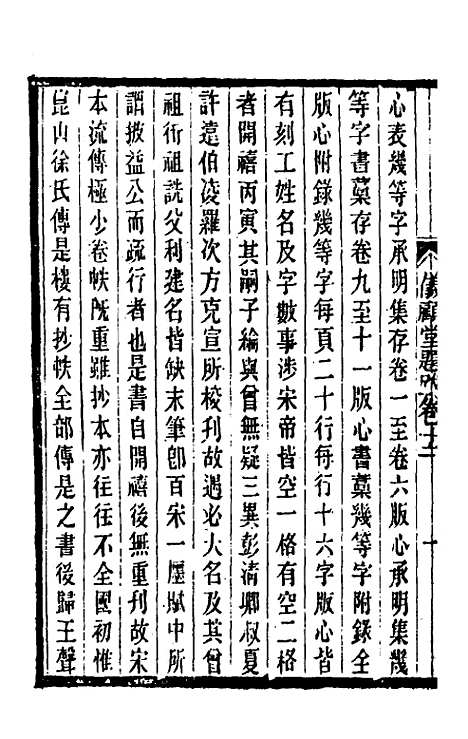 心表幾等字承明集存卷一至卷六版心承明集幾
等字書藁存卷九至十一版心書藁幾等字附錄全
版心附錄幾等字每頁二十行每行十六字版心皆
有刻工姓名及字數事涉宋帝皆空一格有空二格
者開禧丙寅其嗣子綸與曾無疑三異彭清卿叔夏
許凌伯淩羅次方克宣所校刊故遇必大名及其曾
祖衎祖詵父利建名皆缺末筆卽百宋一廛賦中所
謂披益公而疏行者也是書自開禧後無重刊故宋
本流傳極少卷帙旣重雖抄本亦往往不全國初惟
崑山徐氏傳是樓有抄帙全部傳是之書後歸王聲
儀顧堂題跋卷十二
一